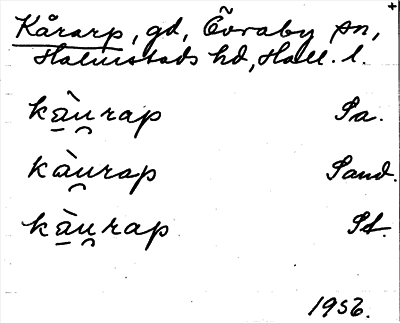 Kårarp, gd, Övraby sn,
Halmstads hd, Hall. l.
kàu̯rap Sa.
kàu̯rap Sand.
kàu̯rap St.
1956.